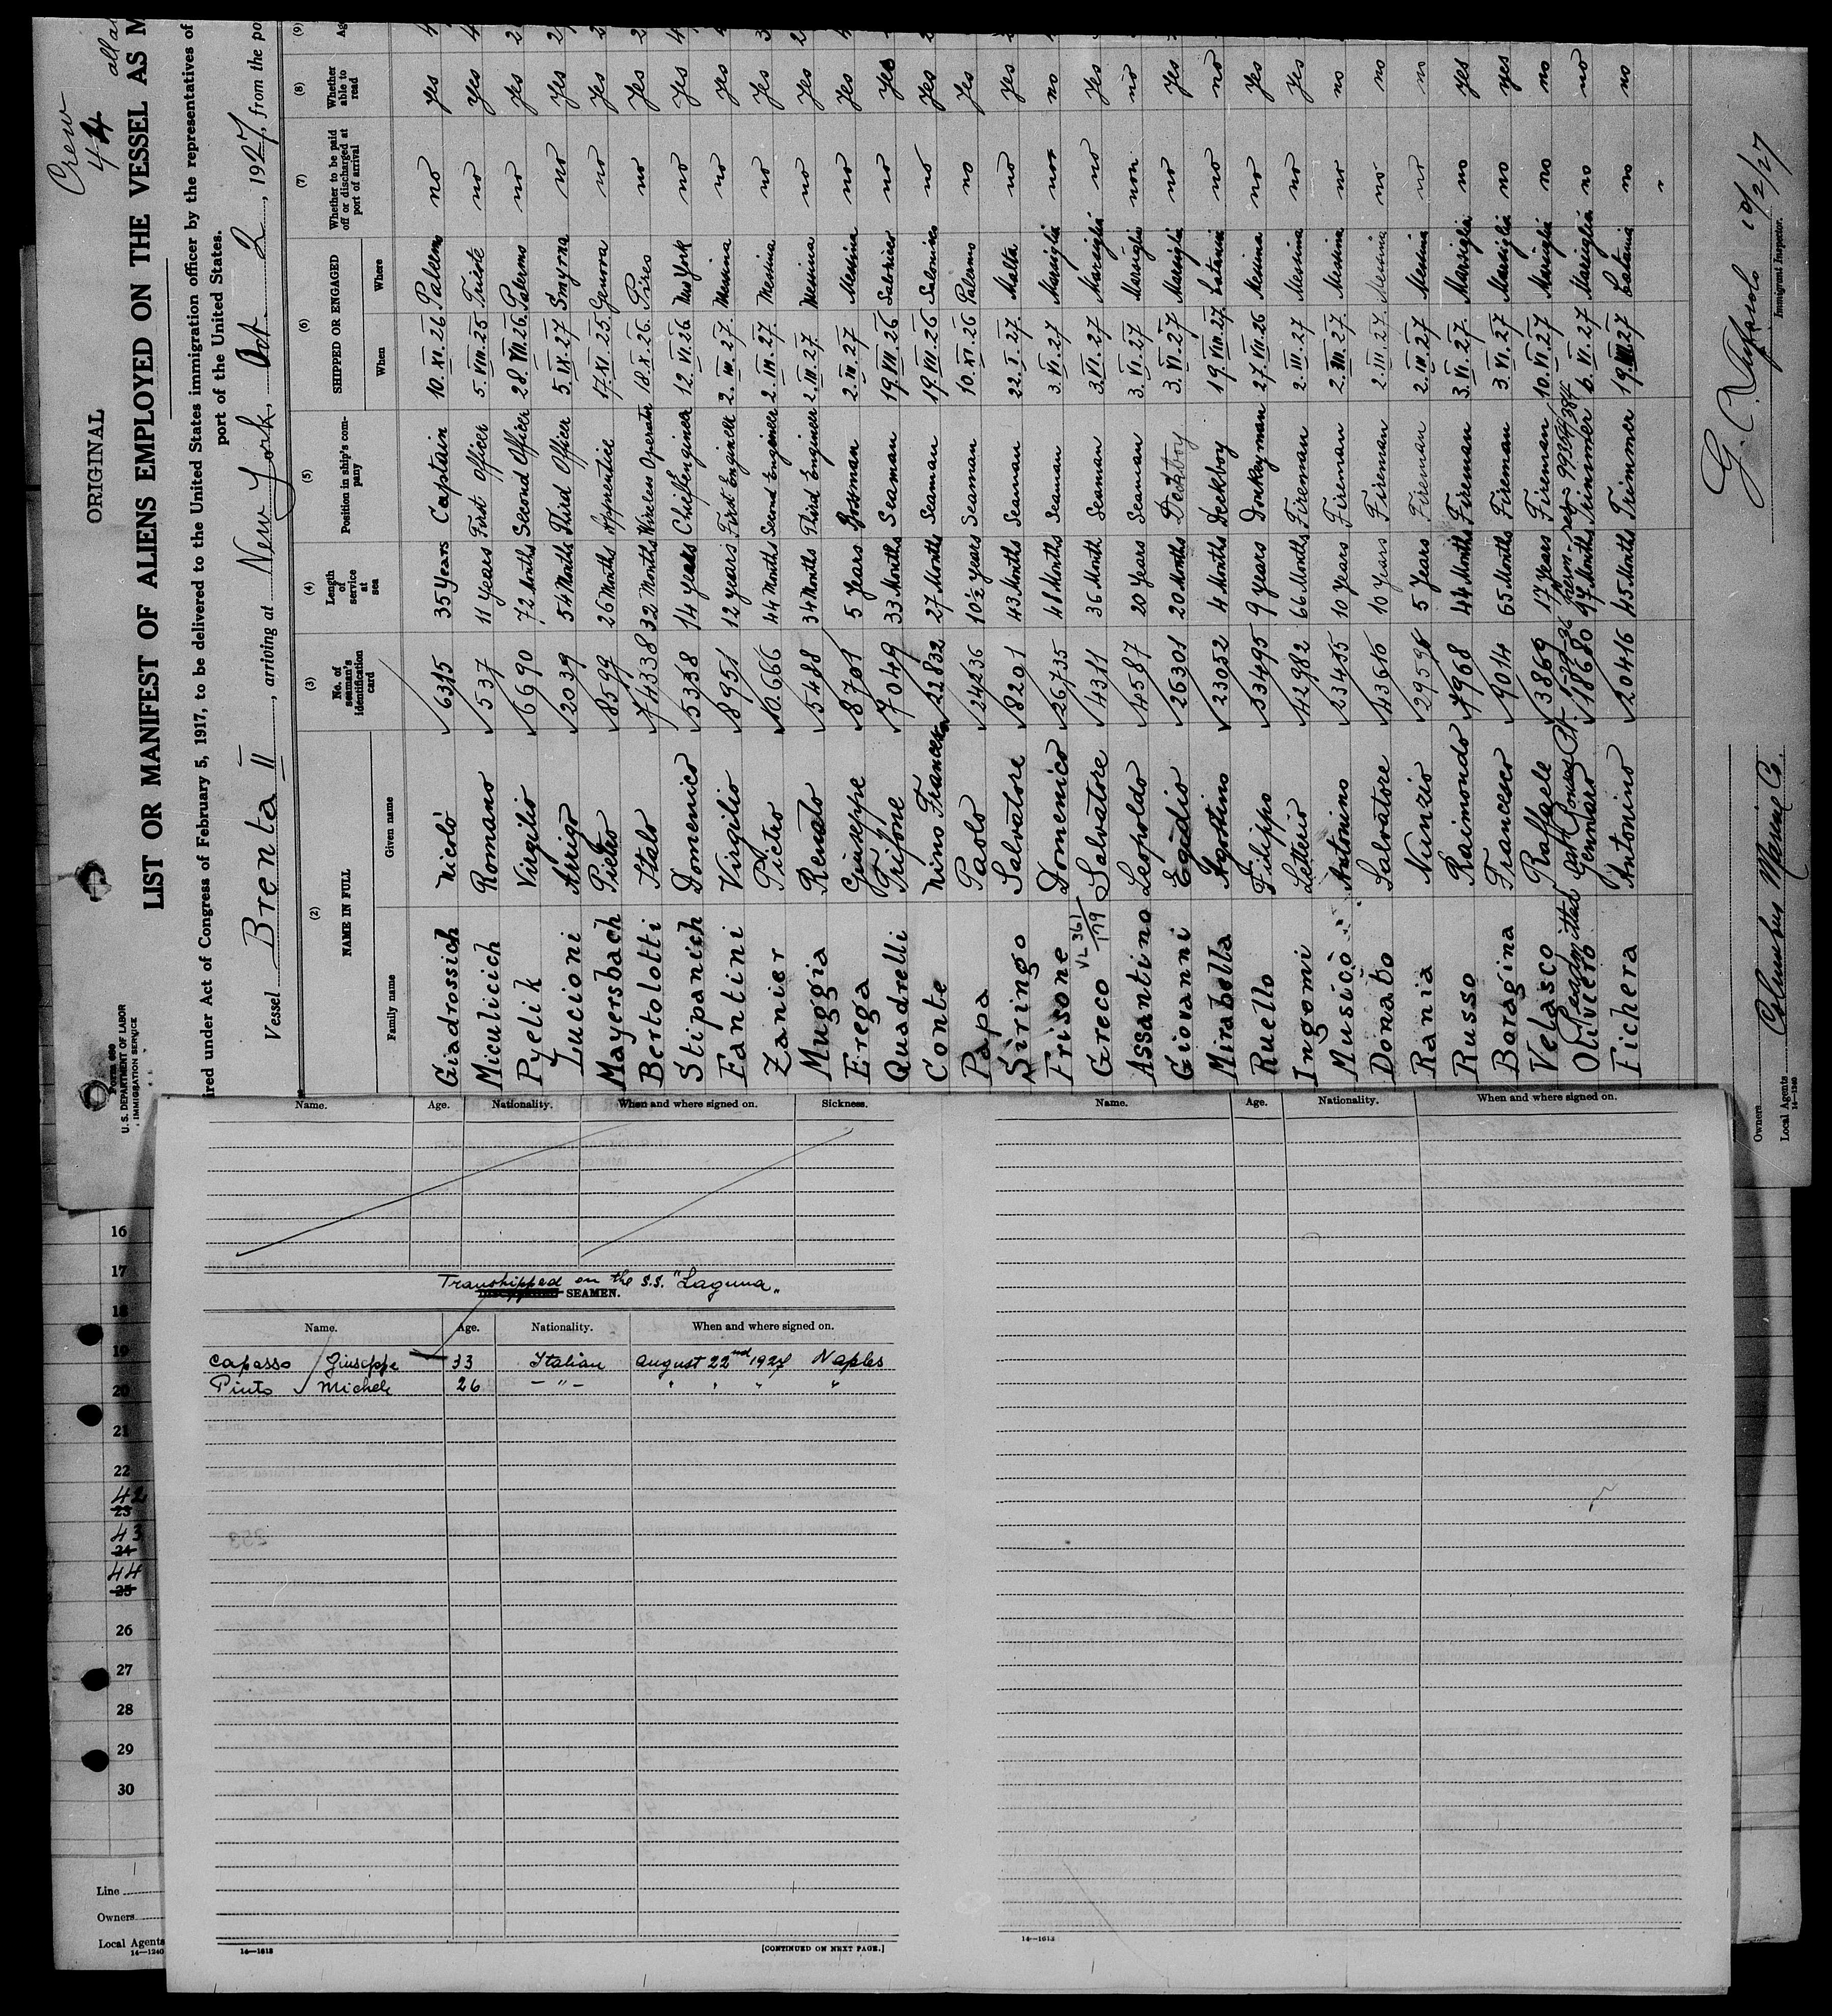 ORIGINAL
Crew
44
Form 680
U. S. DEPARTMENT OF LABOR
IMMIGRATION SERVICE
LIST OR MANIFEST OF ALIENS EMPLOYED ON THE VESSEL AS M
ired under Act of Congress of February 5, 1917, to be delivered to the United States immigration officer by the representatives of
port of the United States.
Vessel Brenta II, arriving at New York, Oct 2, 1927, from the po
(2) NAME IN FULL (3) No. of seaman's identification card (4) Length of service at sea (5) Position in ship's company (6) SHIPPED OR ENGAGED (7) Whether to be paid off or discharged at port of arrival (8) Whether able to read (9) Ag
Family name Given name When Where
Giadrossich Nicolò 6315 35 Years Captain 10. XI. 26 Palermo no yes
Miculicich Romano 537 11 years First Officer 5. VIII. 25 Trieste no yes
Pyelik Virgilio 6690 72 Months Second Officer 28. VIII. 26. Palermo no yes
Lucioni Arrigo 2039 54 Months Third Officer 5 IX. 27 Smyrna no yes
Mayersbach Pietro 8599 26 Months Apprentice 17. XI. 25. Genova no yes
Bertolotti Italo 74338 32 Months Wireless Operator 18. X. 26. no yes
Stipanich Domenico 5338 14 years Chief Engineer 12. VI. 26 New York no yes
Fantini Virgilio 8951 12 years First Engineer 2. III. 27. Messina no yes
Zanier Pietro 10.666 44 Months Second Engineer 2. III. 27. Messina no yes
Muggia Renato 5488 34 Months Third Engineer 2. III. 27 Messina no yes
Erega Giuseppe 8701 5 Years Bossman 2. III. 27 Messina no yes
Quadrelli Trifone 7049 33 Months Seaman 19. VII. 26 no yes
Conte Nino Francesco 22832 27 Months Seaman 19 VII. 26 Salonico no yes
Papa Paolo 24236 10½ years Seaman 10. XI. 26 Palermo no yes
Siringo Salvatore 8201 43 Months Seaman 22. I. 27. Malta no yes
Frisone Domenico 26735 48 Months Seaman 3. VI. 27 Marsiglia non no
VL 361/179
Greco Salvatore 4311 36 Month Seaman 3. VI. 27 Marsiglia no yes
Assantino Leopoldo 4587 20 Years Seaman 3. VI. 27 Marsiglia non no
Giovanni Egidio 26301 20 Months Deckboy 3. VI. 27 Marsiglia no yes
Mirabella Agostino 23052 4 Months Deckboy 19. VIII. 27 Catania no no
Ruello Filippo 33495 9 years Donkeyman 27. VII. 26 Messina no yes
Ingomi Letterio 42982 66 Months Fireman 2. III. 27 Messina no yes
Musicò Antonino 23455 10 Years Fireman 2. III. 27. Messina no no
Donato Salvatore 43616 10 Years Fireman 2. III. 27. Messina no no
Rania Nunzio 5 Years Fireman 2. III. 27 Messina no no
Russo Raimondo 4968 44 Months Fireman 3. VI. 27. Marsiglia no yes
Boragina Francesco 9014 65 Months Fireman 3. VI. 27 Marsiglia no yes
Velasco Raffaele 3869 17 Years Fireman 10. VI. 27 Marsiglia no no
Readmitted
Oliviero Gennaro 18680 97 Months Trimmer 6. VI. 27 Marsiglia no no
Fichera Antonino 20416 45 Months Trimmer 19. VIII. 27 Catania no no
G. C. 10/2/27
Immigrant Inspector.
Owners
Local Agents Columbus Marine Co.
14—1240
Name. Age. Nationality. When and where signed on. Sickness.
Transhipped on the S.S. "Laguna"
SEAMEN.
Name. Age. Nationality. When and where signed on.
Capasso Giuseppe 33 Italian August 22nd 1927 Naples
Pinto Michele 26 — " — " " " "
14—1613
[CONTINUED ON NEXT PAGE.]
Name. Age. Nationality. When and where signed on.
14—1613
16
17
18
19
20
21
22
42
23
43
24
44
25
26
27
28
29
30
Line
Owners
Local Agents
14—1240